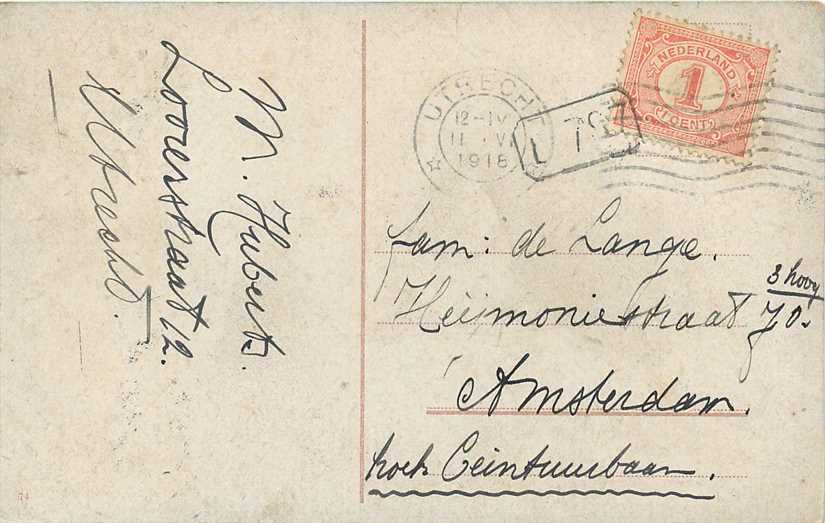 M. Hubert.
Loorerstraat 12.
Utrecht.
UTRECHT
12-IV
11 V
1918
NEDERLAND
1
1 CENT
fam: de Lange.
3 hoog
Heijmoniestraat 70.
Amsterdam.
hoek Ceintuurbaan.
74